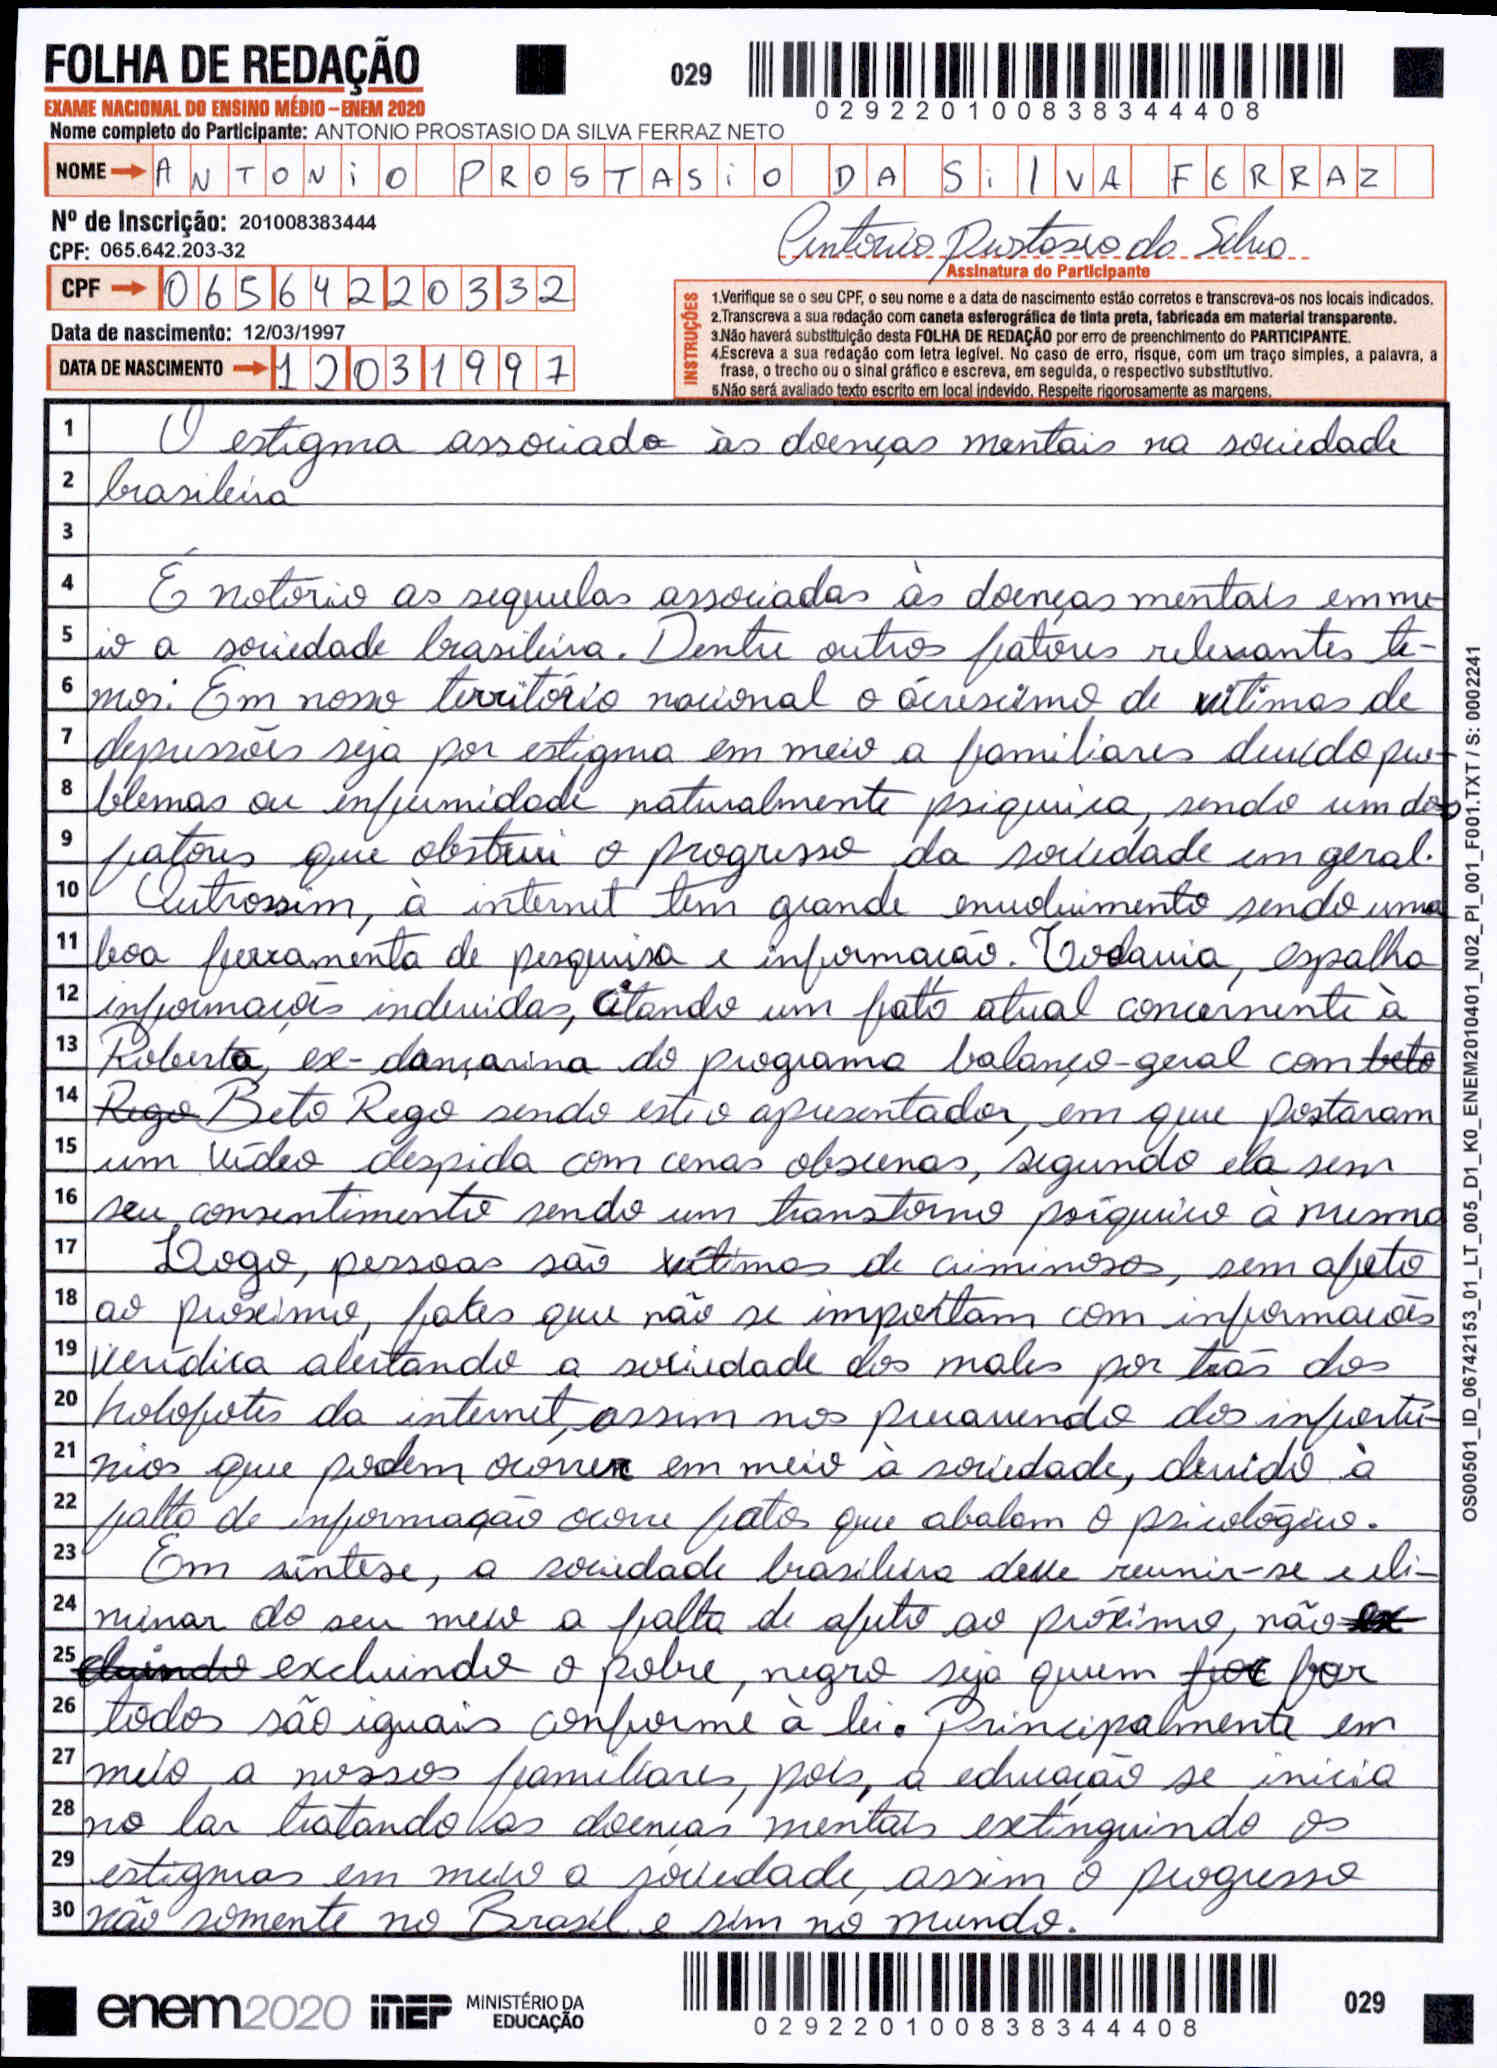 FOLHA DE REDAÇÃO
029
029220100838344408
EXAME NACIONAL DO ENSINO MÉDIO – ENEM 2020
Nome completo do Participante: ANTONIO PROSTASIO DA SILVA FERRAZ NETO
NOME ANTONIO PROSTASIO DA SILVA FERRAZ
Nº de Inscrição: 201008383444
CPF: 065.642.203-32
Antonio Prostasio da Silva
Assinatura do Participante
CPF 06564220332
Data de nascimento: 12/03/1997
DATA DE NASCIMENTO 12031997
INSTRUÇÕES
1.Verifique se o seu CPF, o seu nome e a data de nascimento estão corretos e transcreva-os nos locais indicados.
2.Transcreva a sua redação com caneta esferográfica de tinta preta, fabricada em material transparente.
3.Não haverá substituição desta FOLHA DE REDAÇÃO por erro de preenchimento do PARTICIPANTE.
4.Escreva a sua redação com letra legível. No caso de erro, risque, com um traço simples, a palavra, a
frase, o trecho ou o sinal gráfico e escreva, em seguida, o respectivo substitutivo.
5.Não será avaliado texto escrito em local indevido. Respeite rigorosamente as margens.
1 O estigma associado às doenças mentais na sociedade
2 brasileira
3
4 É notório as sequelas associadas às doenças mentais em me-
5 io a sociedade brasileira. Dentre outros fatores relevantes te-
6 mos: Em nosso território nacional o ácrescimo de vitimas de
7 depressões seja por estigma em meio a familiares devido pro-
8 blemas ou enfermidade naturalmente psiquica, sendo um dos
9 fatores que obstrui o progresso da sociedade em geral.
10 Outrossim, à internet tem grande envolvimento sendo uma
11 boa ferramenta de pesquisa e informacão. Todavia, espalha
12 informações indevidas, citando um fato atual concernente à
13 Roberta, ex-dançarina do programa balanço-geral com beto
14 Rego Beto Rego sendo este o apresentador, em que postaram
15 um vídeo despida com cenas obscenas, segundo ela sem
16 seu consentimento sendo um transtorno psíquico à mesma
17 Logo, pessoas são vítimas de criminosos, sem afeto
18 ao próximo, fakes que não se importam com informacões
19 verídica alertando a sociedade dos males por trás dos
20 holofotes da internet, assim nos precavendo dos infortú-
21 nios que podem ocorrer em meio à sociedade, devido à
22 falta de informação ocorre fatos que abalam o psicológico.
23 Em síntese, a sociedade brasileira deve reunir-se e eli-
24 minar do seu meio a falta de afeto ao próximo, não ex
25 cluindo excluindo o pobre, negro seja quem for for
26 todos são iguais conforme à lei. Principalmente em
27 meio a nossos familiares, pois, a educação se inicia
28 no lar tratando as doencas mentais extinguindo os
29 estigmas em meio a sociedade, assim o progresso
30 não somente no Brasil e sim no mundo.
OS00501_ID_06742153_01_LT_005_D1_K0_ENEM2010401_N02_PI_001_F001.TXT / S: 0002241
enem2020
INEP
MINISTÉRIO DA
EDUCAÇÃO
029220100838344408
029